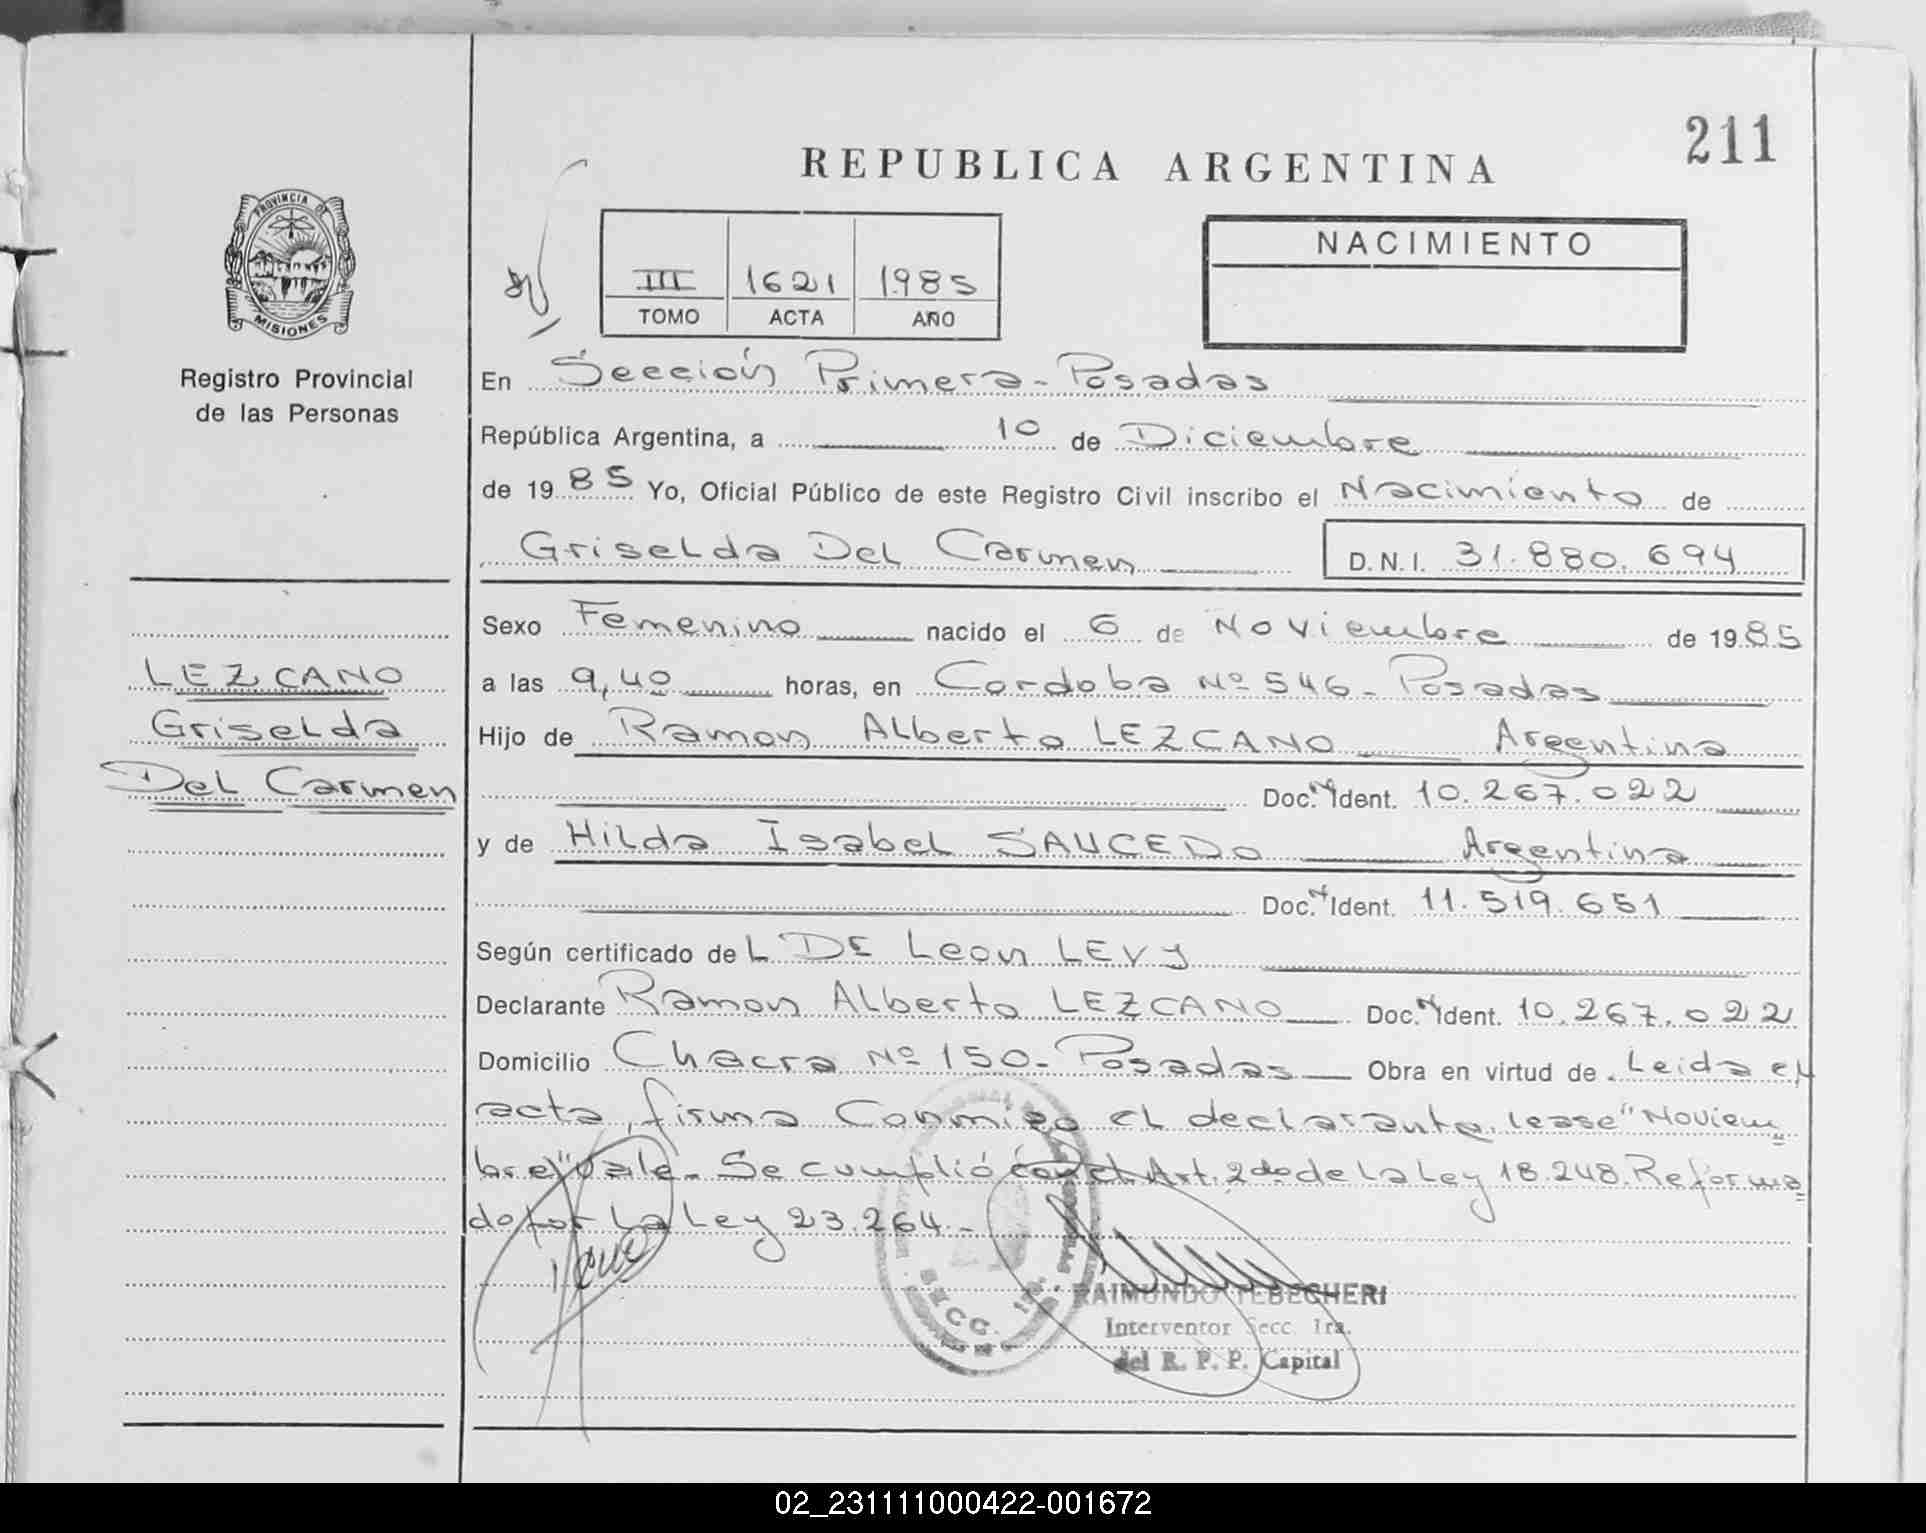 211
REPUBLICA ARGENTINA
PROVINCIA DE
MISIONES
Registro Provincial
de las Personas
III 1621 1985
TOMO ACTA AÑO
NACIMIENTO
En Sección Primera - Posadas
República Argentina, a 10 de Diciembre
de 1985 Yo, Oficial Público de este Registro Civil inscribo el Nacimiento de
Griselda Del Carmen D.N.I. 31.880.694
LEZCANO
Griselda
Del Carmen
Sexo Femenino nacido el 6 de Noviembre de 1985
a las 9,40 horas, en Cordoba Nº 546 - Posadas
Hijo de Ramon Alberto LEZCANO Argentina
Doc. Ident. 10.267.022
y de Hilda Isabel SAUCEDO Argentina
Doc. Ident. 11.519.651
Según certificado de L DE Leon LEVY
Declarante Ramon Alberto LEZCANO Doc. Ident. 10.267.022
Domicilio Chacra Nº 150 - Posadas Obra en virtud de Leida el
acta, firma Conmigo el declarante, lease "Noviem=
bre" Vale - Se cumplió con el Art. 2do de La Ley 18.248. Reforma=
do por La Ley 23.264.-
SECC. 1RA.
RAIMUNDO TEBEGHERI
Interventor Secc. 1ra.
del R. P. P. Capital
02_231111000422-001672